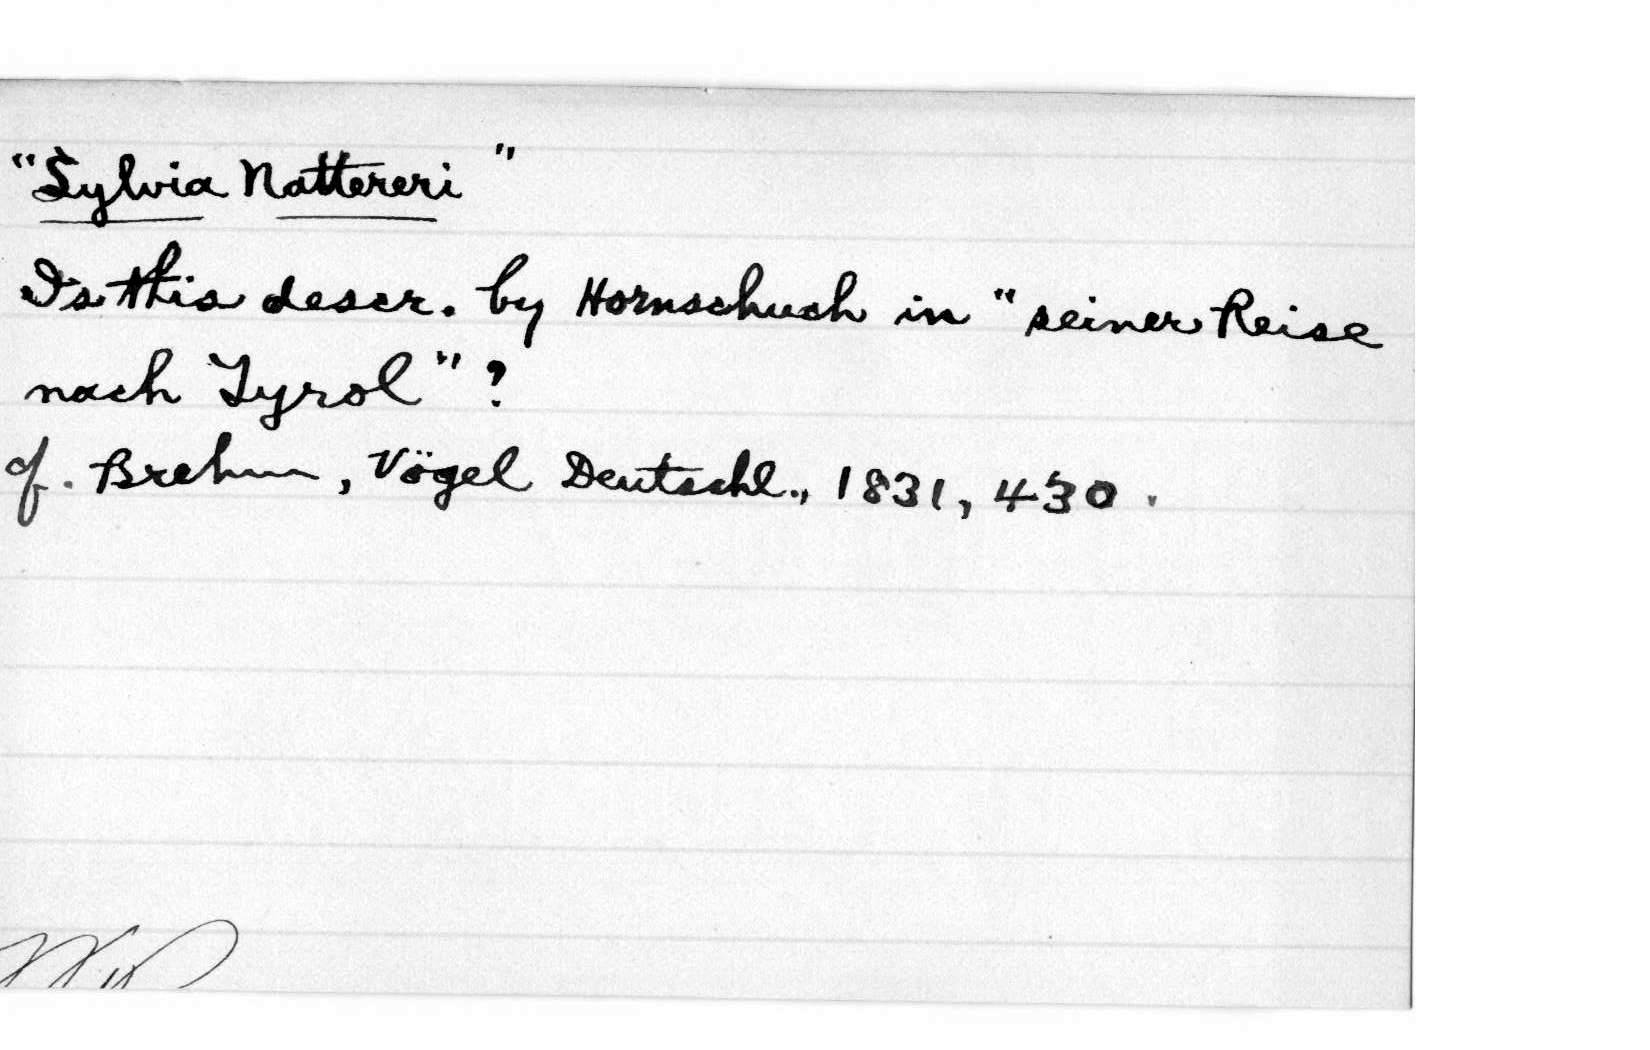 "Sylvia Nattereri"
Is this descr. by Hornschuch in "seiner Reise
nach Tyrol"?
cf. Brehm, Vögel Deutschl., 1831, 430.